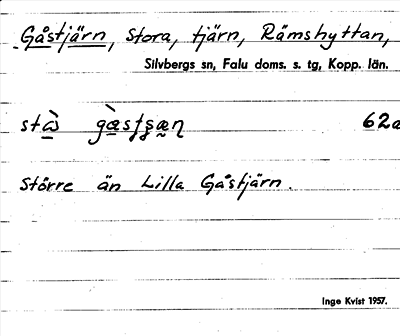 Gåstjärn, Stora, tjärn, Rämshyttan,
Silvbergs sn, Falu doms. s. tg, Kopp. län.
62a
Större än Lilla Gåstjärn.
Inge Kvist 1957.